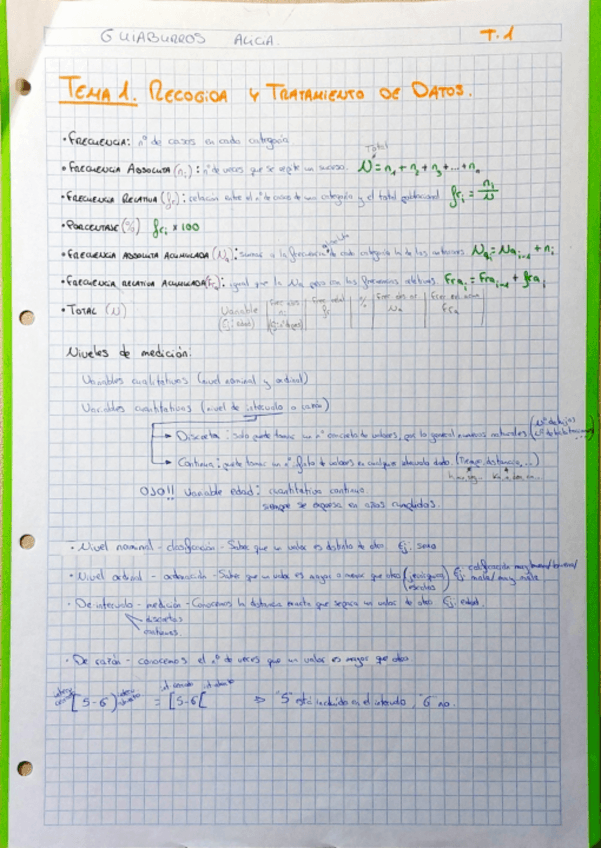 GUIABURROS ALICIA. T.1
TEMA 1. RECOGIDA Y TRATAMIENTO DE DATOS.
• FRECUENCIA: nº de casos en cada categoría
Total
• FRECUENCIA ABSOLUTA (ni): nº de veces que se repite un suceso. N = n1 + n2 + n3 + ... + nn
• FRECUENCIA RELATIVA (fr): relación entre el nº de casos de una categoría y el total fri = ni/N
• PORCENTAJE (%) fri × 100
absoluta
• FRECUENCIA ABSOLUTA ACUMULADA (Na): sumar a la frecuencia de cada categoría la de las anteriores Nai = Nai-1 + ni
• FRECUENCIA RELATIVA ACUMULADA (Fra): igual que la Na pero con las frecuencias relativas. Frai = Frai-1 + frai
• TOTAL (N) Variable (Ej: edad) Frec abs ni Frec relat fr % Frec abs ac Na Frec rel acum Fra
Niveles de medición:
Variables cualitativas (nivel nominal y ordinal)
Variables cuantitativas (nivel de intervalo o razón)
Discreta: solo puede tomar un nº concreto de valores, por lo general números naturales (Nº de hijos
Continua: puede tomar un nº finito de valores en cualquier intervalo dado (Tiempo, distancia, ...)
OJO!! Variable edad: cuantitativa continua.
siempre se expresa en años cumplidos.
• Nivel nominal - clasificación - Saber que un valor es distinto de otro. Ej: sexo
• Nivel ordinal - ordenación - Saber que un valor es mayor o menor que otro (jerárquicas escalas) Ej: calificación muy buena/buena/ mala/muy mala
• De intervalo - medición - Conocemos la distancia exacta que separa un valor de otro Ej: edad.
discretas
continuas.
• De razón - conocemos el nº de veces que un valor es mayor que otro
[5-6) = [5-6[ ⇒ "5" está incluido en el intervalo, "6" no.